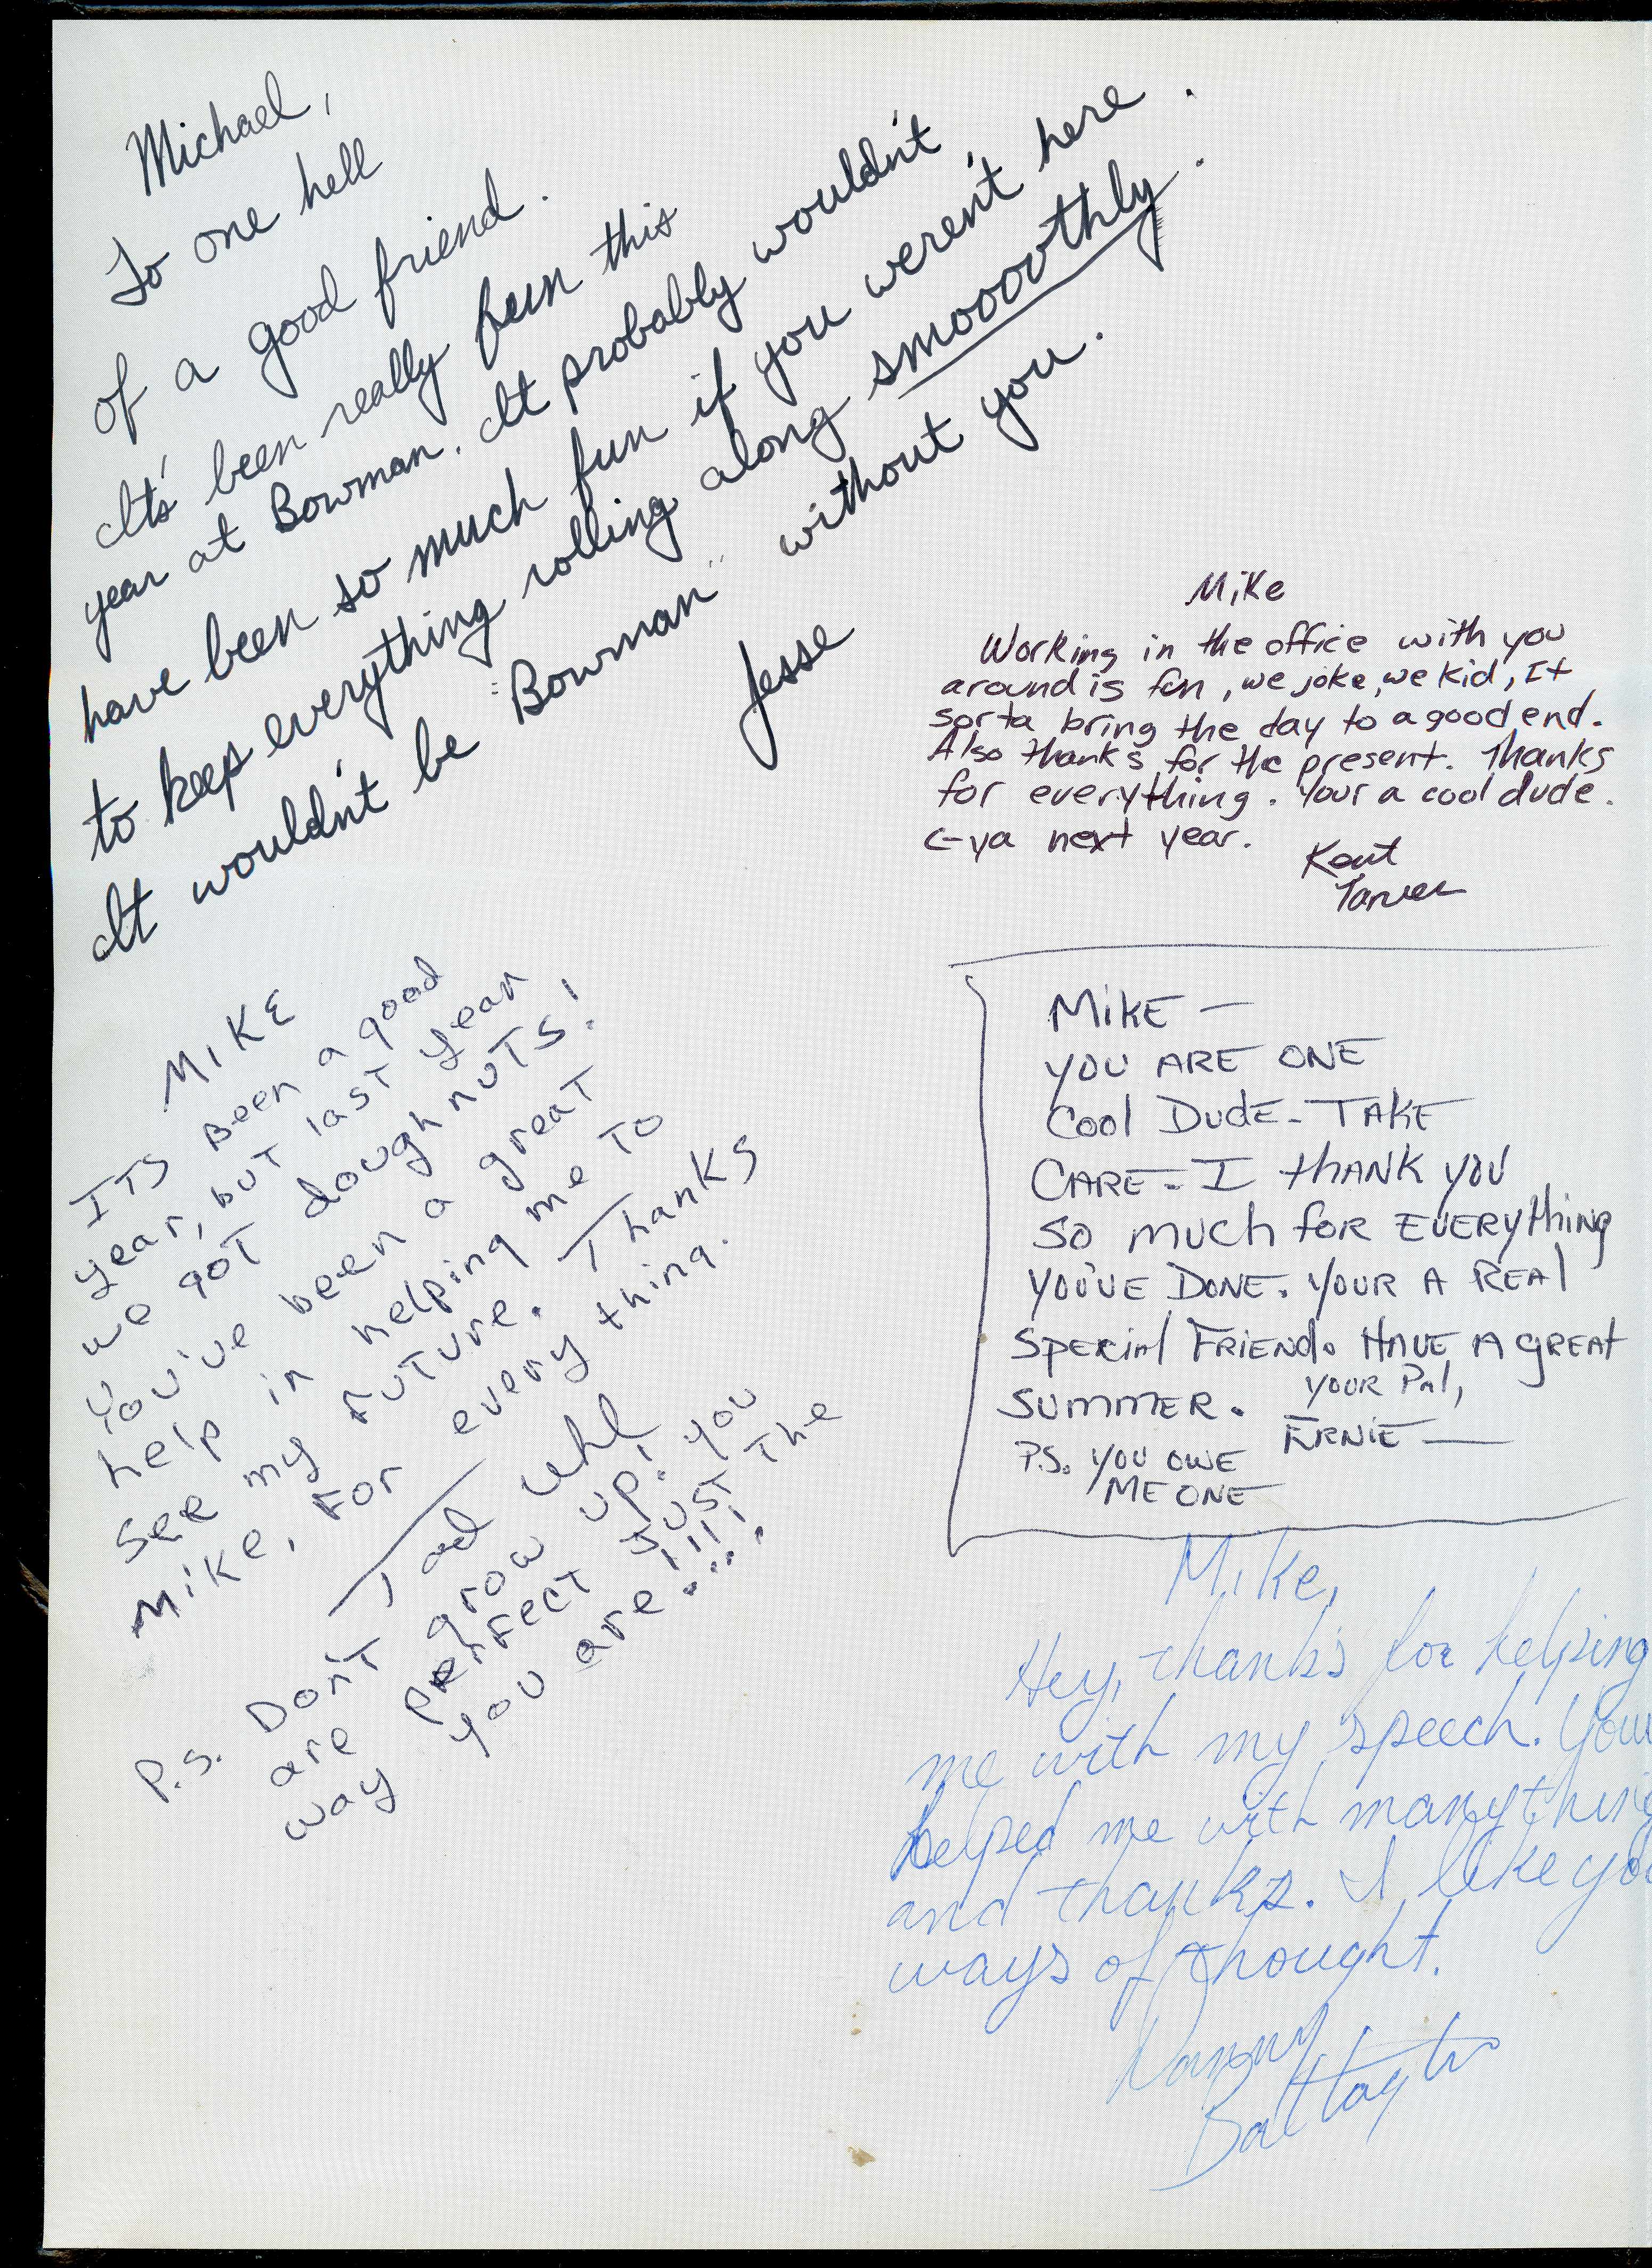 Michael,
To one hell
of a good friend.
It's been really fun this
year at Bowman. It probably wouldn't
have been so much fun if you weren't here.
to keep everything rolling along smooooothly.
It wouldn't be "Bowman" without you.
Jesse
Mike
Working in the office with you
around is fun, we joke, we kid, It
sorta bring the day to a good end.
Also thanks for the present. Thanks
for everything. Your a cool dude.
C-ya next year.
Kent
MIKE
ITS Been a good
year, but last year
we got doughnuts!
You've been a great
help in helping me to
see my future. Thanks
Mike, For every thing.
Tad Uhl
P.S. Don't grow up! you
are perfect just the
way you are!!!!
MIKE —
YOU ARE ONE
Cool DUDE - TAKE
CARE - I thANK YOU
SO MUCh fOR EVERYthiNG
YOU'VE DONE. YOUR A REAl
SPECIAl FRIENd. HAVE A GREAt
SUMMER. YOUR PAl,
ERNIE —
P.S. YOU OWE
ME ONE
Mike,
Hey, thanks for helping
me with my speech. You
helped me with many thing
and thanks. I like you
ways of thought.
Danny